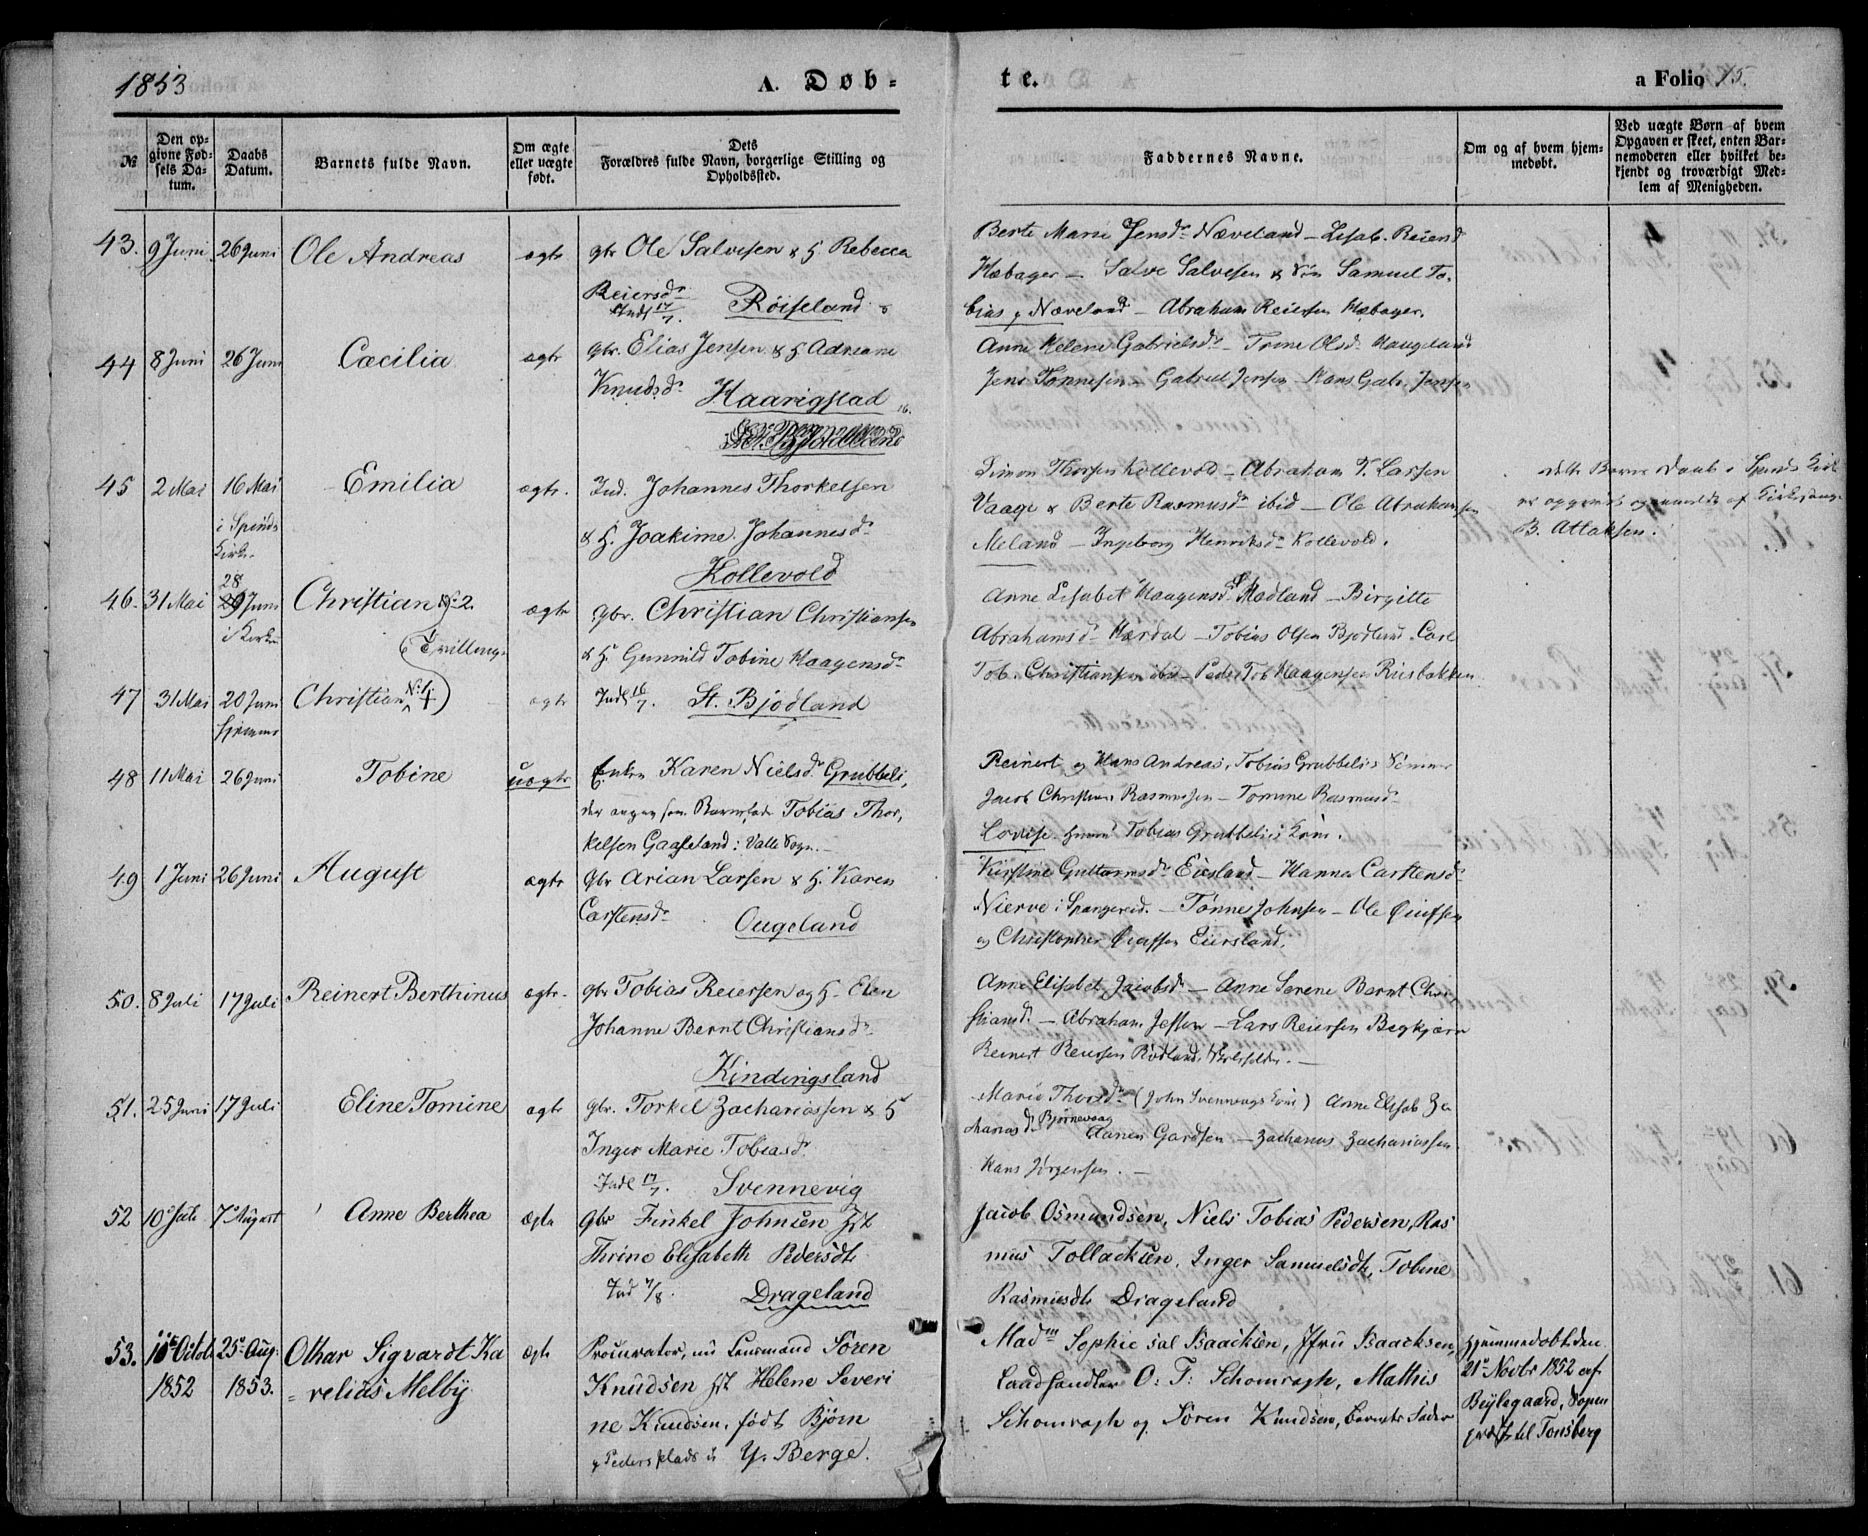 1853
A. Døb-
te.
a Folio 15.
№
Den opgivne Fødsels Datum.
Daabs Datum.
Barnets fulde Navn.
Om ægte eller uægte født.
Dets Forældres fulde Navn, borgerlige Stilling og Opholdssted.
Faddernes Navne.
Om og af hvem hjemmedøbt.
Ved uægte Børn af hvem Opgaven er skeet, enten Barnemoderen eller hvilket bekjendt og troværdigt Medlem af Menigheden.
43. 9 Juni 26 Juni Ole Andreas ægte gbr Ole Salvesen & H Rebecca
Reiersdr
Indl 17/7. Røiseland
Berte Marie Jensdr Næveland – Lisab. Reiersd
Hæbager – Salve Salvesen & Søn Samuel To-
bias Næveland – Abraham Reiersen Hæbager.
44 8 Juni 26 Juni Cæcilia ægte gbr. Elias Jensen & H Adriane
Knudsdr Haarigstad 16.
Anne Helene Gabrielsdr – Trine Olsdr Haugland
Jens Tønnesen – Gabriel Jensen – Hans Gabr. Jensen
45 2 Mai 16 Mai Emilia ægte. Ind. Johannes Thorkelsen
i Spinds
Kirke
& H. Joakime Johannesdr
Kollevold
Simon Thorsen Kollevold – Abraham T. Larsen
Vaage & Berte Rasmusdr ibid – Ole Abrahamsen
Meland – Ingeborg Henriksdr Kollevold.
dette Barns Daab i Spinds Kirk
er opgivet og anmeldt af Kirkesanger
B. Atlaksen.
46. 31 Mai 28 Juni Christian № 2. ægte gbr. Christian Christiansen
i Kirken
Tvillinger
& H. Gunnild Tobine Haagensdr
Anne Lisabet Haagensdr Madland – Birgitte
Abrahamsdr Hærdal – Tobias Olsen Bjodland Carl
Tob. Christiansen ibid – Peder Tob Haagensen Riisbakken
47 31 Mai 20 Juni Christian № 1. ægte Indl 16/7. St. Bjodland
hjemme
48 11 Mai 26 Juni Tobine uægte Enken Karen Nielsdr Grubbeli,
der angav som Barnefader Tobias Thor-
kelsen Gaaseland i Valle Sogn. –
Reinert og Hans Andreas, Tobias Grubbelis Sønner
Jacob Christian Rasmussen – Tomine Rasmusdr
Lovise Tobias Grubbelis Kone.
49 1 Juni 26 Juni August ægte Gbr Arian Larsen & H. Karen
Carstensdr Øugeland
Kirstine Guttormsdr Eiesland – Hanna Carstensdr
Nierve i Spangereid. – Tønne Johnsen – Ole
og Christopher Eiersland.
50. 8 Juli 17 Juli Reinert Berthinus ægte gbr Tobias Reiersen og H. Elen
Johanne Bernt Christiansdr
Kindingsland
Anne Elisabet Jacobsdr – Anne Serene Bernt Chri-
stiansdr – Abraham Jessen – Lars Reiersen Birkjærn
Reinert Reiersen Rødland. –
51. 25 Juni 17 Juli Eline Tomine ægte gbr. Torkel Zachariassen & H
Inger Marie Tobiasdr.
Indl 17/7. Svennevig
Marie Thorsdr (John Svennevigs Kone) Anne Elisab Za-
chariasdr Bjørnevaag Aanen Gardsen – Zacharias Zachariassen
Hans Jørgensen. –
52 10 Juli 7 August Anne Berthea ægte Gbr Finkel Johnsen Hst
Thrine Elisabeth Pedersdtr
Ind 7/8. Drageland
Jacob Osmundsen, Niels Tobias Pedersen, Ras
mus Tollacksen, Inger Samuelsdtr, Tobine
Rasmusdtr Drageland
53. 11te Octob 25de Aug. Othar Sigvardt Ka ægte Procurator, nu Lensmand Søren
1852 1853. relias Melby Knudsen Hst Helene Severi
ne Knudsen, født Bjørn
Pedersplads i Y. Berge.
Madm Sophie sal Isaacksen, Jfru Isaacksen,
Landhandler O. T. Schomragh, Mathis
Schomragh og Søren Knudsen, Barnets Fader
hjemmedøbt den
21de Novbr 1852 af
Beylegaard, Sogne
præst til Tønsberg